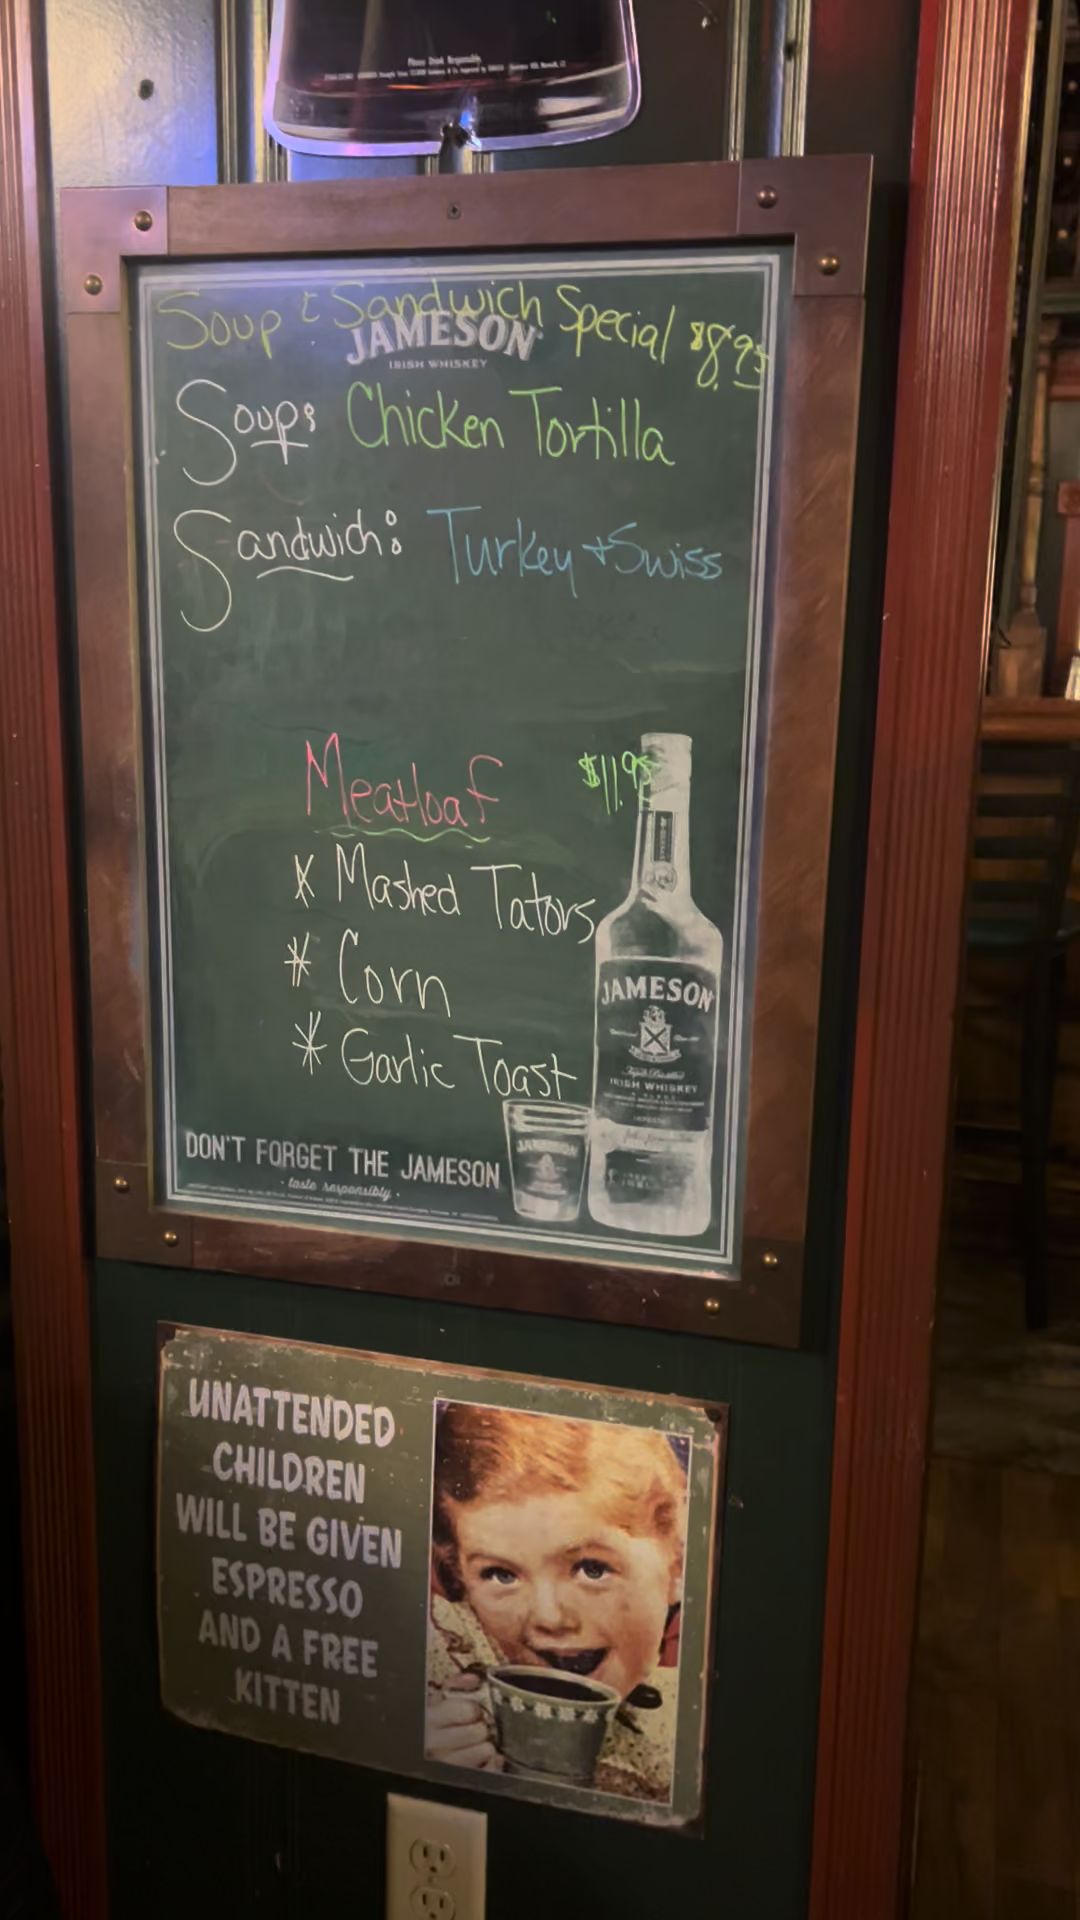 Please Drink Responsibly.
Soup & Sandwich Special $8.95
JAMESON
IRISH WHISKEY
Soup: Chicken Tortilla
Sandwich: Turkey + Swiss
Meatloaf $11.95
* Mashed Tators
* Corn
* Garlic Toast
JAMESON
IRISH WHISKEY
JAMESON
DON'T FORGET THE JAMESON
· taste responsibly ·
UNATTENDED
CHILDREN
WILL BE GIVEN
ESPRESSO
AND A FREE
KITTEN